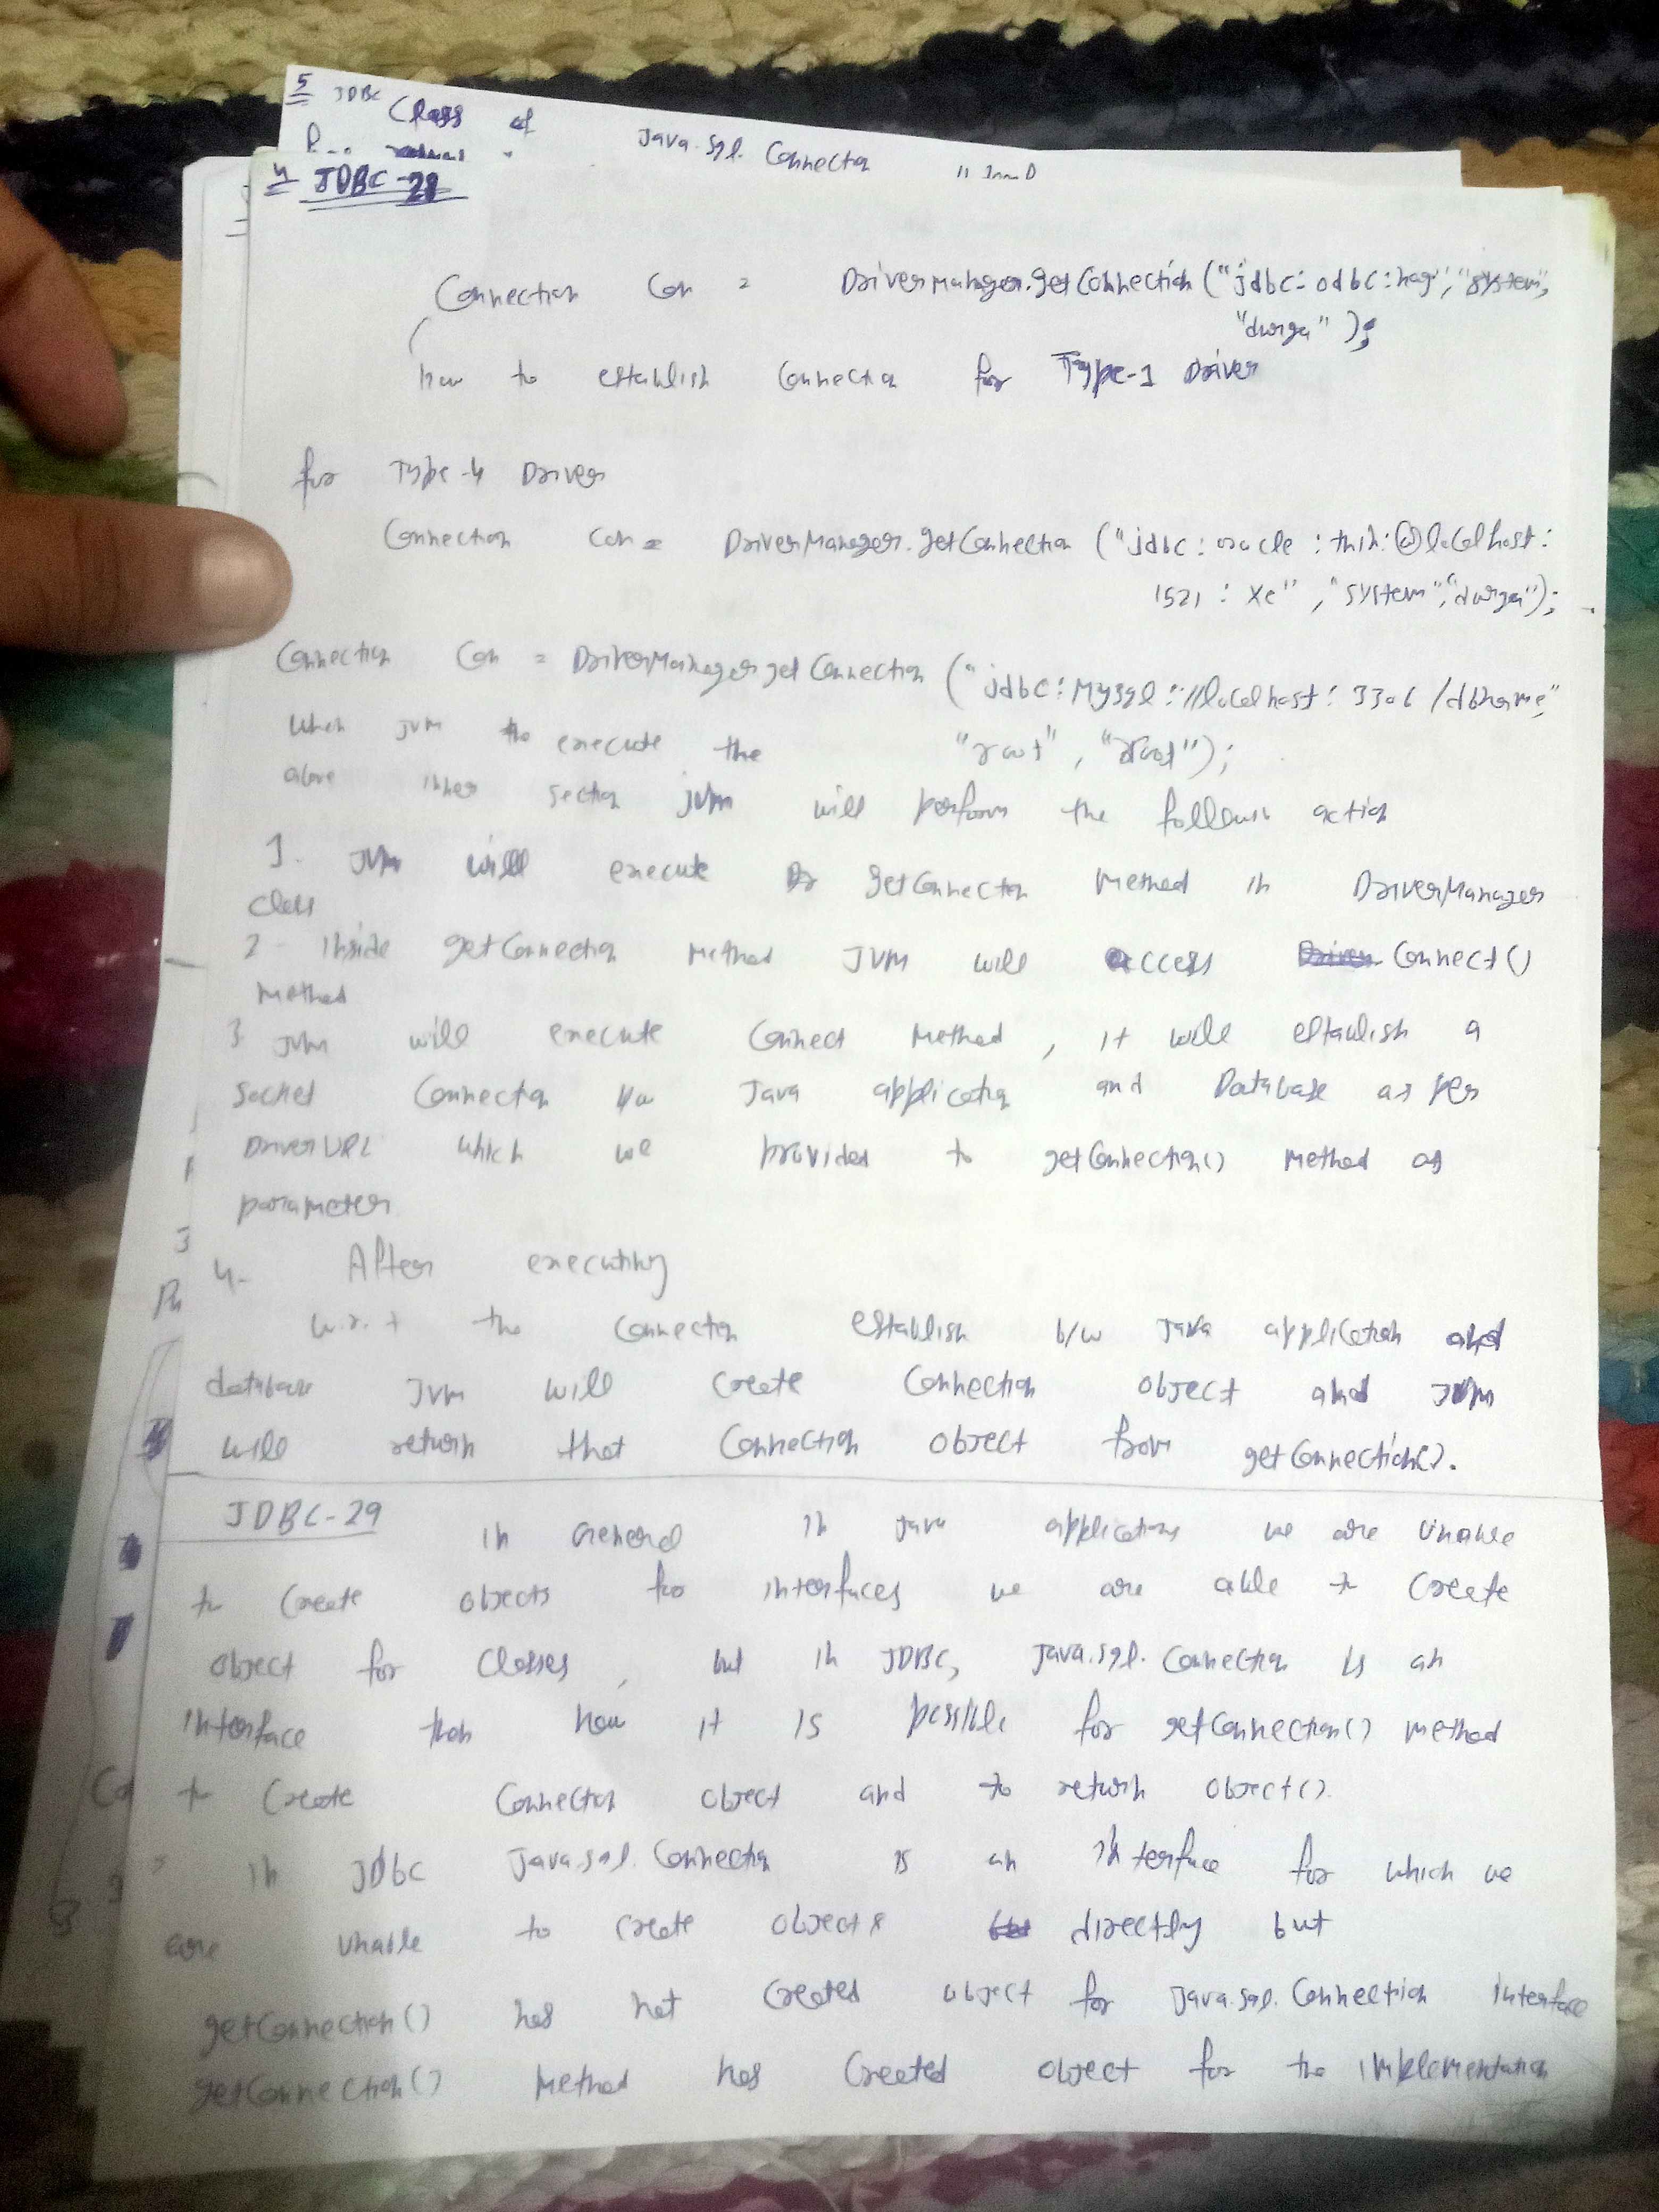 5 JDBC Class of Java.sql. Connectn
4 JDBC-28
Connection Con = DriverManager.getConnection("jdbc:odbc:nag","system",
"durga");
how to establish Connectn for Type-1 Driver
for Type-4 Driver
Connection con = DriverManager.getConnection ("jdbc:oracle:thin:@localhost:
1521:xe","system","durga");
Connection Con = DriverManager.getConnection ("jdbc:Mysql://localhost:3306/dbname",
When JVM execute the "root", "root");
above inner section jvm will perform the follown action
1. JVM will execute getConnecton Method in DriverManager
class
2- Inside getConnection Method JVM will access Connect()
Method
3 JVM will execute Connect Method, it will establish a
Socket Connectn b/w Java application and Database as per
DriverURL which we provided to getConnection() Method as
parameter
4- After executing
w.r.t the Connectn establish b/w Java application and
database JVM will create Connection object and JVM
will return that Connection object from getConnection().
JDBC-29
In General in Java applications we are unable
to Create objects for interfaces we are able to Create
object for Classes, but in JDBC, Java.sql. Connection is an
Interface then how it is possible for getConnection() method
to Create Connection object and to return object().
In JDBC Java.sql. Connectn is an interface for which we
are unable to create objects directly but
getConnection() has not Created object for Java.sql. Connection interface
getConnection() Method has Created object for the implementation